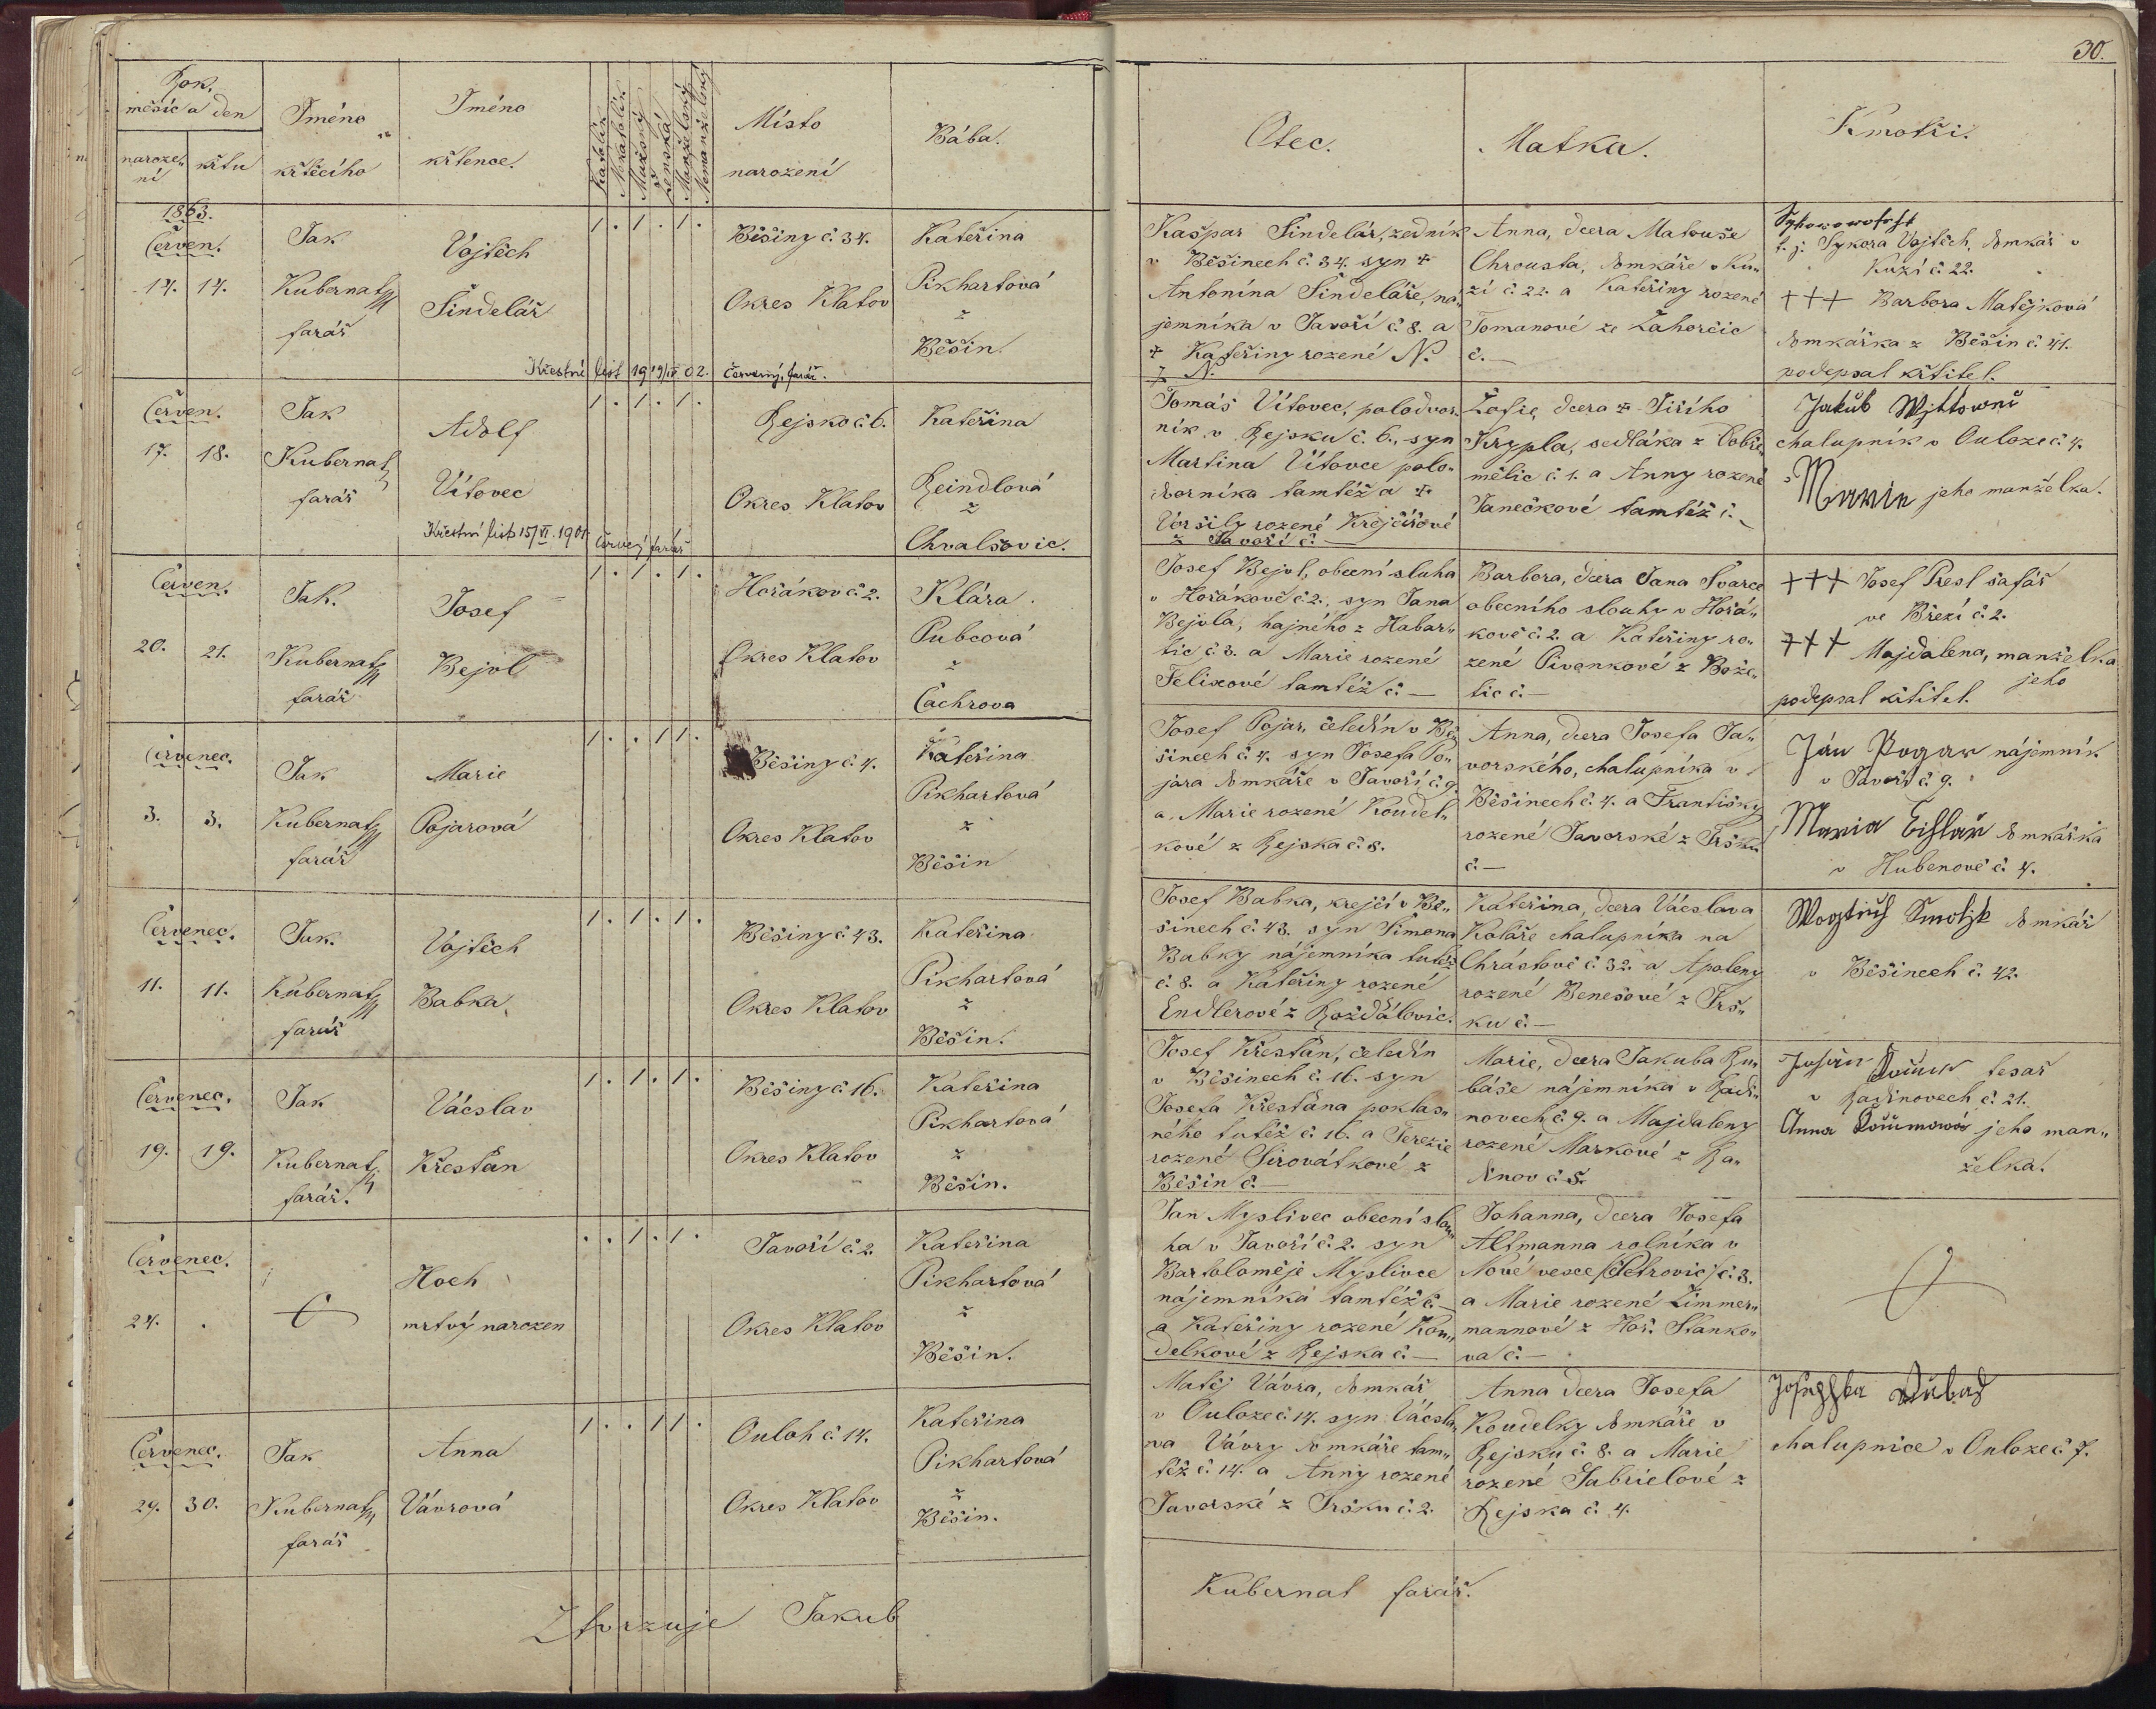 30.
Rok,
měsíc a den
naroze„
ní
křtu
Jméno
křtícího
Jméno
křtence.
Katolík
Nekatolík
Mužský
ženská
Manželský
Nemanželský
Místo
narození
Bába.
Otec.
Matka.
Kmotři.
1863.
Červen.
14. 14.
Jak
Kubernat
farář
Vojtěch
Šindelář
1 . 1 . 1 .
Běšiny č. 34.
Okres Klatov
Kateřina
Pikhartová
z
Běšin.
Křestní list 19 19/IV 02. Červený, farář.
Kašpar Šindelář, zedník
v Běšinech č. 34. syn +
Antonína Šindeláře, ná„
jemníka v Javoří č. 8. a
+ Kateřiny rozené N.
z N.
Anna, dcera Matouše
Chrousta, domkáře v Ku„
zí č. 22. a Kateřiny rozené
Tomanové ze Zahorčic
č. —
t. j. Sykora Vojtěch, domkář v
Kuzí č. 22.
+++ Barbora Matějková
domkářka z Běšin č. 41.
podepsal křtitel.
Červen.
17. 18.
Jak
Kubernat
farář
Adolf
Vítovec
1 . 1 . 1 .
Rejsko č. 6.
Okres Klatov
Kateřina
Reindlová
z
Chvalšovic.
Křestní list 15/VI. 1901. Červený farář
Tomáš Vítovec, polodvor„
ník v Rejsku č. 6., syn
Martina Vítovce polo„
dvorníka tamtéž a +
Voršily rozené Krejčířové
z Javoří č. —
Žofie, dcera + Jiřího
Krypla, sedláka z Dobře„
mělic č. 1. a Anny rozené
Janečkové tamtéž č. —
Jakub
chalupník v Ouloze č. 4.
jeho manželka.
Červen.
20. 21.
Jak.
Kubernat
farář
Josef
Bejvl
1 . 1 . 1 .
Hořákov č. 2.
Okres Klatov
Klára
Pubcová
z
Čachrova
Josef Bejvl, obecní sluha
v Hořákově č. 2., syn Jana
Bejvla, hajného z Habar„
tic č. 3. a Marie rozené
Felixové tamtéž č. —
Barbora, dcera Jana Švarce
obecního slouhy v Hořá„
kově č. 2. a Kateřiny ro„
zené Pivonkové z Bože„
tic č. —
+++ Josef Presl šafář
ve Březí č. 2.
+++ Majdalena, manželka
jeho
podepsal křtitel.
Červenec.
3. 3.
Jak
Kubernat
farář
Marie
Pojarová
1 . . 1 1 .
Běšiny č. 4.
Okres Klatov
Kateřina
Pikhartová
z
Běšin
Josef Pojar, čeledín v Bě„
šinech č. 4. syn Josefa Po„
jara domkáře v Javoří č. 9.
a Marie rozené Koudel„
kové z Rejska č. 8.
Anna, dcera Josefa Ja„
vorského, chalupníka v
Běšinech č. 4. a Františky
rozené Javorské z Jršku
č. —
Jan Pogar nájemník
v Javoří č. 9.
Maria domkářka
v Hubenově č. 4.
Červenec.
11. 11.
Jak.
Kubernat
farář
Vojtěch
Babka
1 . 1 . 1 .
Běšiny č. 43.
Okres Klatov
Kateřina
Pikhartová
z
Běšin.
Josef Babka, krejčí v Bě„
šinech č. 43. syn Šimona
Babky nájemníka tutéž
č. 8. a Kateřiny rozené
Endlerové z Roždálovic.
Kateřina, dcera Vácslava
Koláře chalupníka na
Chrástově č. 32. a Apoleny
rozené Benešové z Jrš„
ku č. —
domkář
v Běšinech č. 42.
Červenec.
19. 19.
Jak
Kubernat
farář.
Vácslav
Křesťan
1 . 1 . 1 .
Běšiny č. 16.
Okres Klatov
Kateřina
Pikhartová
z
Běšin.
Josef Křesťan, čeledín
v Běšinech č. 16. syn
Josefa Křesťana poklas„
ného tutéž č. 16. a Terezie
rozené Sirovátkové z
Běšin č. —
Marie, dcera Jakuba Ry„
báře nájemníka v Radi„
novech č. 9. a Majdaleny
rozené Markové z Ra„
dinov č. 5.
tesař
v Radinovech č. 21.
Anna jeho man„
želka.
Červenec.
24. .
Hoch
mrtvý narozen
. . 1 . 1 .
Javoří č. 2.
Okres Klatov
Kateřina
Pikhartová
z
Běšin.
Jan Myslivec obecní slou„
ha v Javoří č. 2. syn
Bartoloměje Myslivce
nájemníka tamtéž č. —
a Kateřiny rozené Kou„
delkové z Rejska č. —
Johanna, dcera Josefa
Altmanna rolníka v
Nové vesce /: Petrovic :/ č. 3.
a Marie rozené Zimmer„
mannové z Hoř. Stanko„
va č. —
Červenec.
29. 30.
Jak
Kubernat
farář
Anna
Vávrová
1 . . 1 1 .
Ouloh č. 14.
Okres Klatov
Kateřina
Pikhartová
z
Běšin.
Matěj Vávra, domkář
v Ouloze č. 14. syn Vácsla„
va Vávry domkáře tam„
též č. 14. a Anny rozené
Javorské z Jršku č. 2.
Anna dcera Josefa
Koudelky domkáře v
Rejsku č. 8. a Marie
rozené Gabrielové z
Rejska č. 4.
chalupnice v Ouloze č. 7.
Ztvrzuje Jakub Kubernat farář.